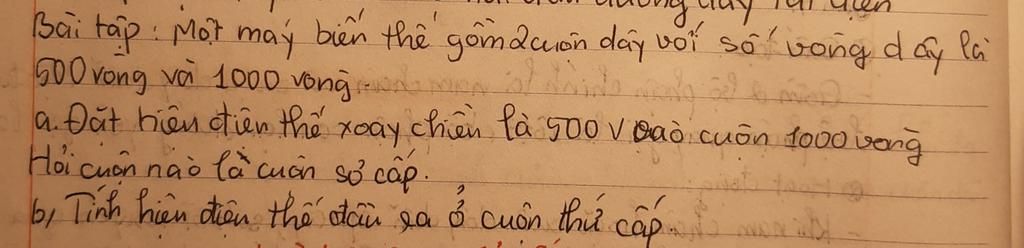 Bài tập: Một máy biến thế gồm 2 cuộn dây với số vòng dây là
500 vòng và 1000 vòng
a. Đặt hiệu điện thế xoay chiều là 500 V vào cuộn 1000 vòng
Hỏi cuộn nào là cuộn sơ cấp.
b, Tính hiệu điện thế đầu ra ở cuộn thứ cấp.